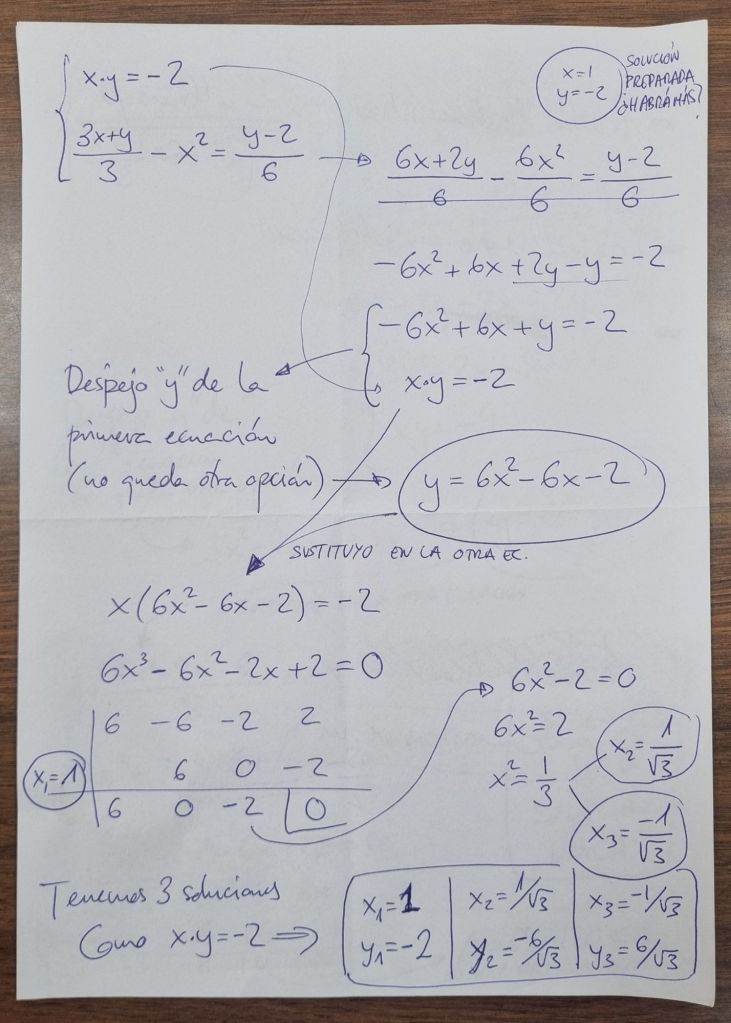 x·y = -2
(3x+y)/3 - x² = (y-2)/6
x=1
y=-2
SOLUCIÓN
PREPARADA
¿HABRÁ MÁS?
(6x+2y)/6 - 6x²/6 = (y-2)/6
-6x²+6x+2y-y = -2
-6x²+6x+y = -2
x·y = -2
Despejo "y" de la
primera ecuación
(no queda otra opción)
y = 6x²-6x-2
SUSTITUYO EN LA OTRA EC.
x(6x²-6x-2) = -2
6x³-6x²-2x+2 = 0
6 -6 -2 2
x₁=1 6 0 -2
6 0 -2 0
6x²-2 = 0
6x² = 2
x² = 1/3
x₂ = 1/√3
x₃ = -1/√3
Tenemos 3 soluciones
Como x·y = -2 ⇒
x₁=1 x₂=1/√3 x₃=-1/√3
y₁=-2 y₂=-6/√3 y₃=6/√3